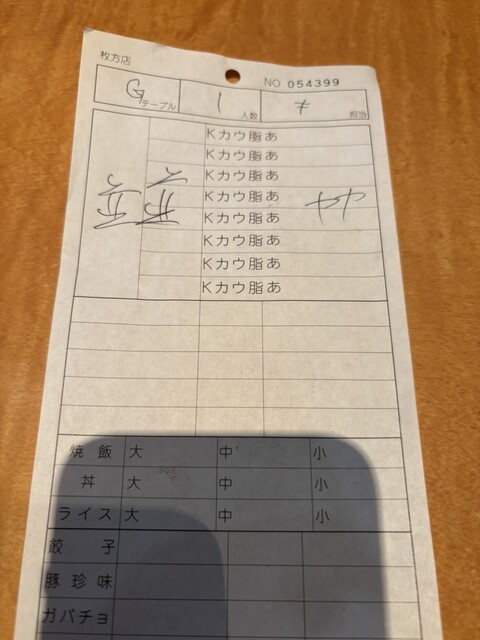 枚方店
NO 054399
G テーブル 1 人数 担当
Kカウ脂あ
Kカウ脂あ
Kカウ脂あ
Kカウ脂あ
Kカウ脂あ
Kカウ脂あ
Kカウ脂あ
Kカウ脂あ
焼飯 大 中 小
丼 大 中 小
ライス 大 中 小
餃子
豚珍味
ガバチョ